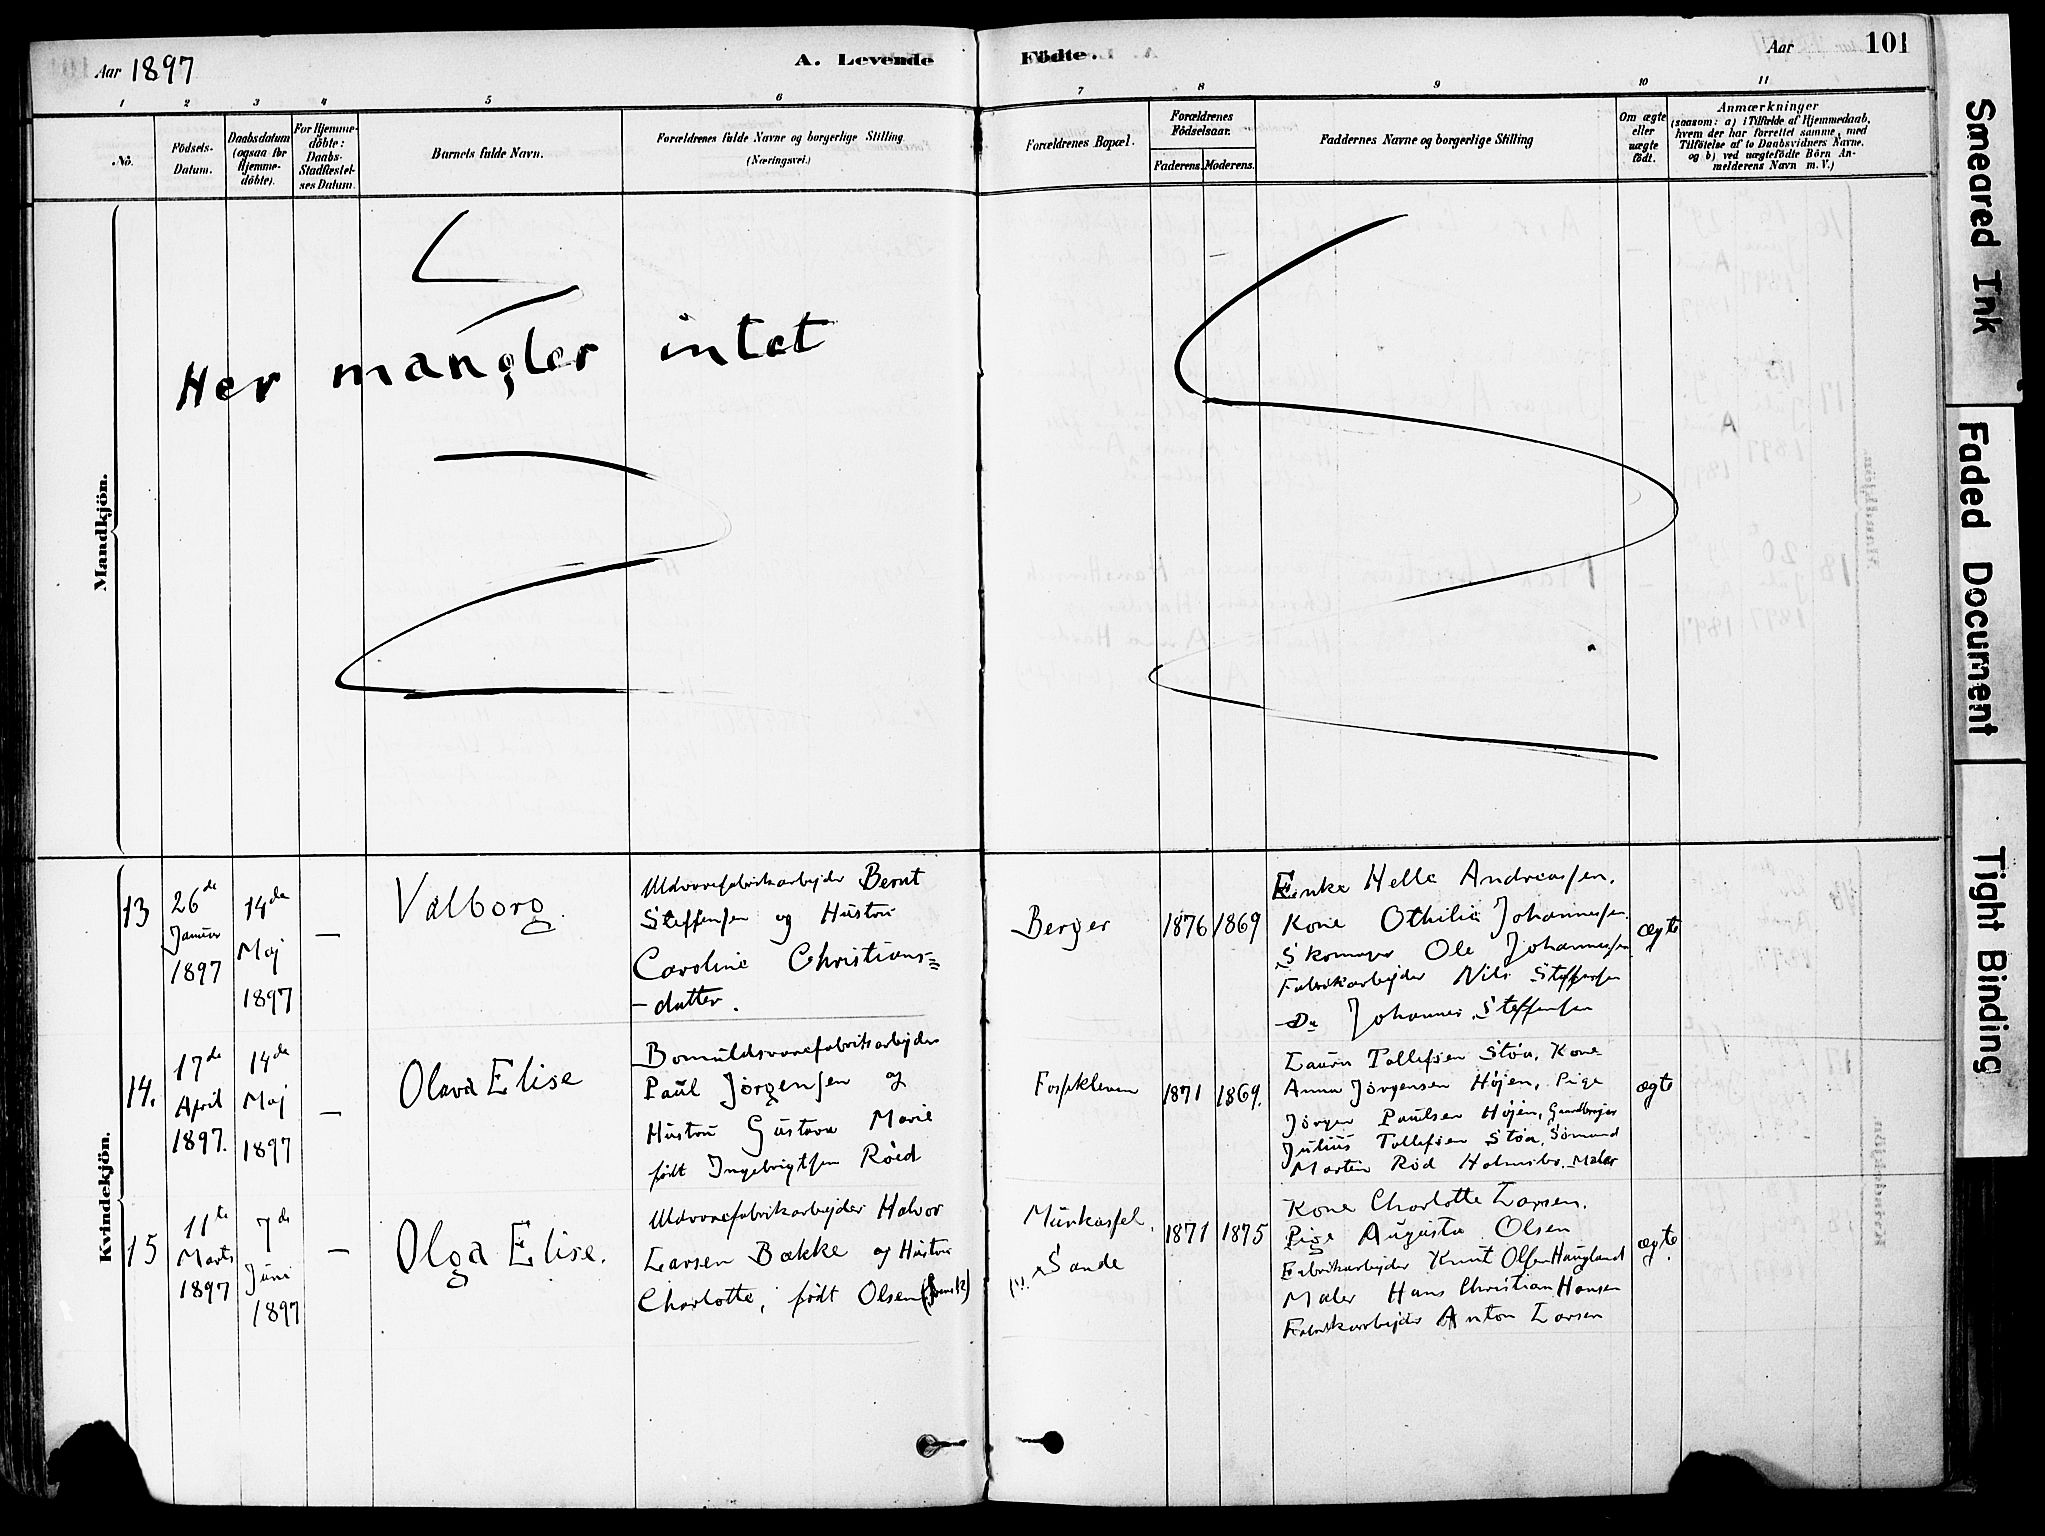 Aar 1897
A. Levende
Födte.
Aar
101
1 2 3 4 5 6 7 8 9 10 11
No.
Födsels-
Datum.
Daabsdatum
(ogsaa for
Hjemme-
döbte).
For Hjemme-
döbte:
Daabs-
Stadfæstel-
ses Datum.
Barnets fulde Navn.
Forældrenes fulde Navne og borgerlige Stilling
(Næringsvei.)
Forældrenes Bopæl.
Forældrenes
Födselsaar.
Faderens. Moderens.
Faddernes Navne og borgerlige Stilling
Om ægte
eller
uægte
født.
Anmærkninger
(saasom: a) i Tilfælde af Hjemmedaab,
hvem der har forrettet samme, med
Tilföielse af to Daabsvidners Navne.
og b) ved uægtefödte Börn An-
melderens Navn m. V.)
Mandkjön.
Her mangler intet
Kvindekjön.
13
26de
Januar
1897
14de
Maj
1897
—
Valborg
Uldvarefabrikarbejder Bernt
Steffensen og Hustru
Caroline Christians=
-datter.
Berger
1876
1869
Enke Helle Andreassen.
Kone Othilie Johannessen.
Skomager Ole Johannessen
Fabrikarbejder Nils Steffensen
-Do Johannes Steffensen
ægte
14.
17de
April
1897.
14de
Maj
1897
—
Olava Elise
Bomuldsvarefabrikarbejder
Paul Jörgensen og
Hustru Gustava Marie
født Ingebrigtsen Röed
Fospkleven
1871
1869.
Laura Tollefsen Støa, Kone
Anna Jörgensen Höjen, Pige
Jörgen Paulsen Höjen, Gaardbruger
Julius Tollefsen Støa, Sømand
Martin Rød Holmsbo. Maler
ægte
15
11te
Marts
1897
7de
Juni
1897
—
Olga Elise.
Uldvarefabrikarbejder Halvor
Larsen Bakke og Hustru
Charlotte, født Olsen
Sande
1871
1875
Kone Charlotte Larsen.
Pige Augusta Olsen
Fabrikarbejder Knut Olsen Haugland
Maler Hans Christian Hansen
Fabrikarbejder Anton Larsen
ægte.
Smeared Ink
Faded Document
Tight Binding